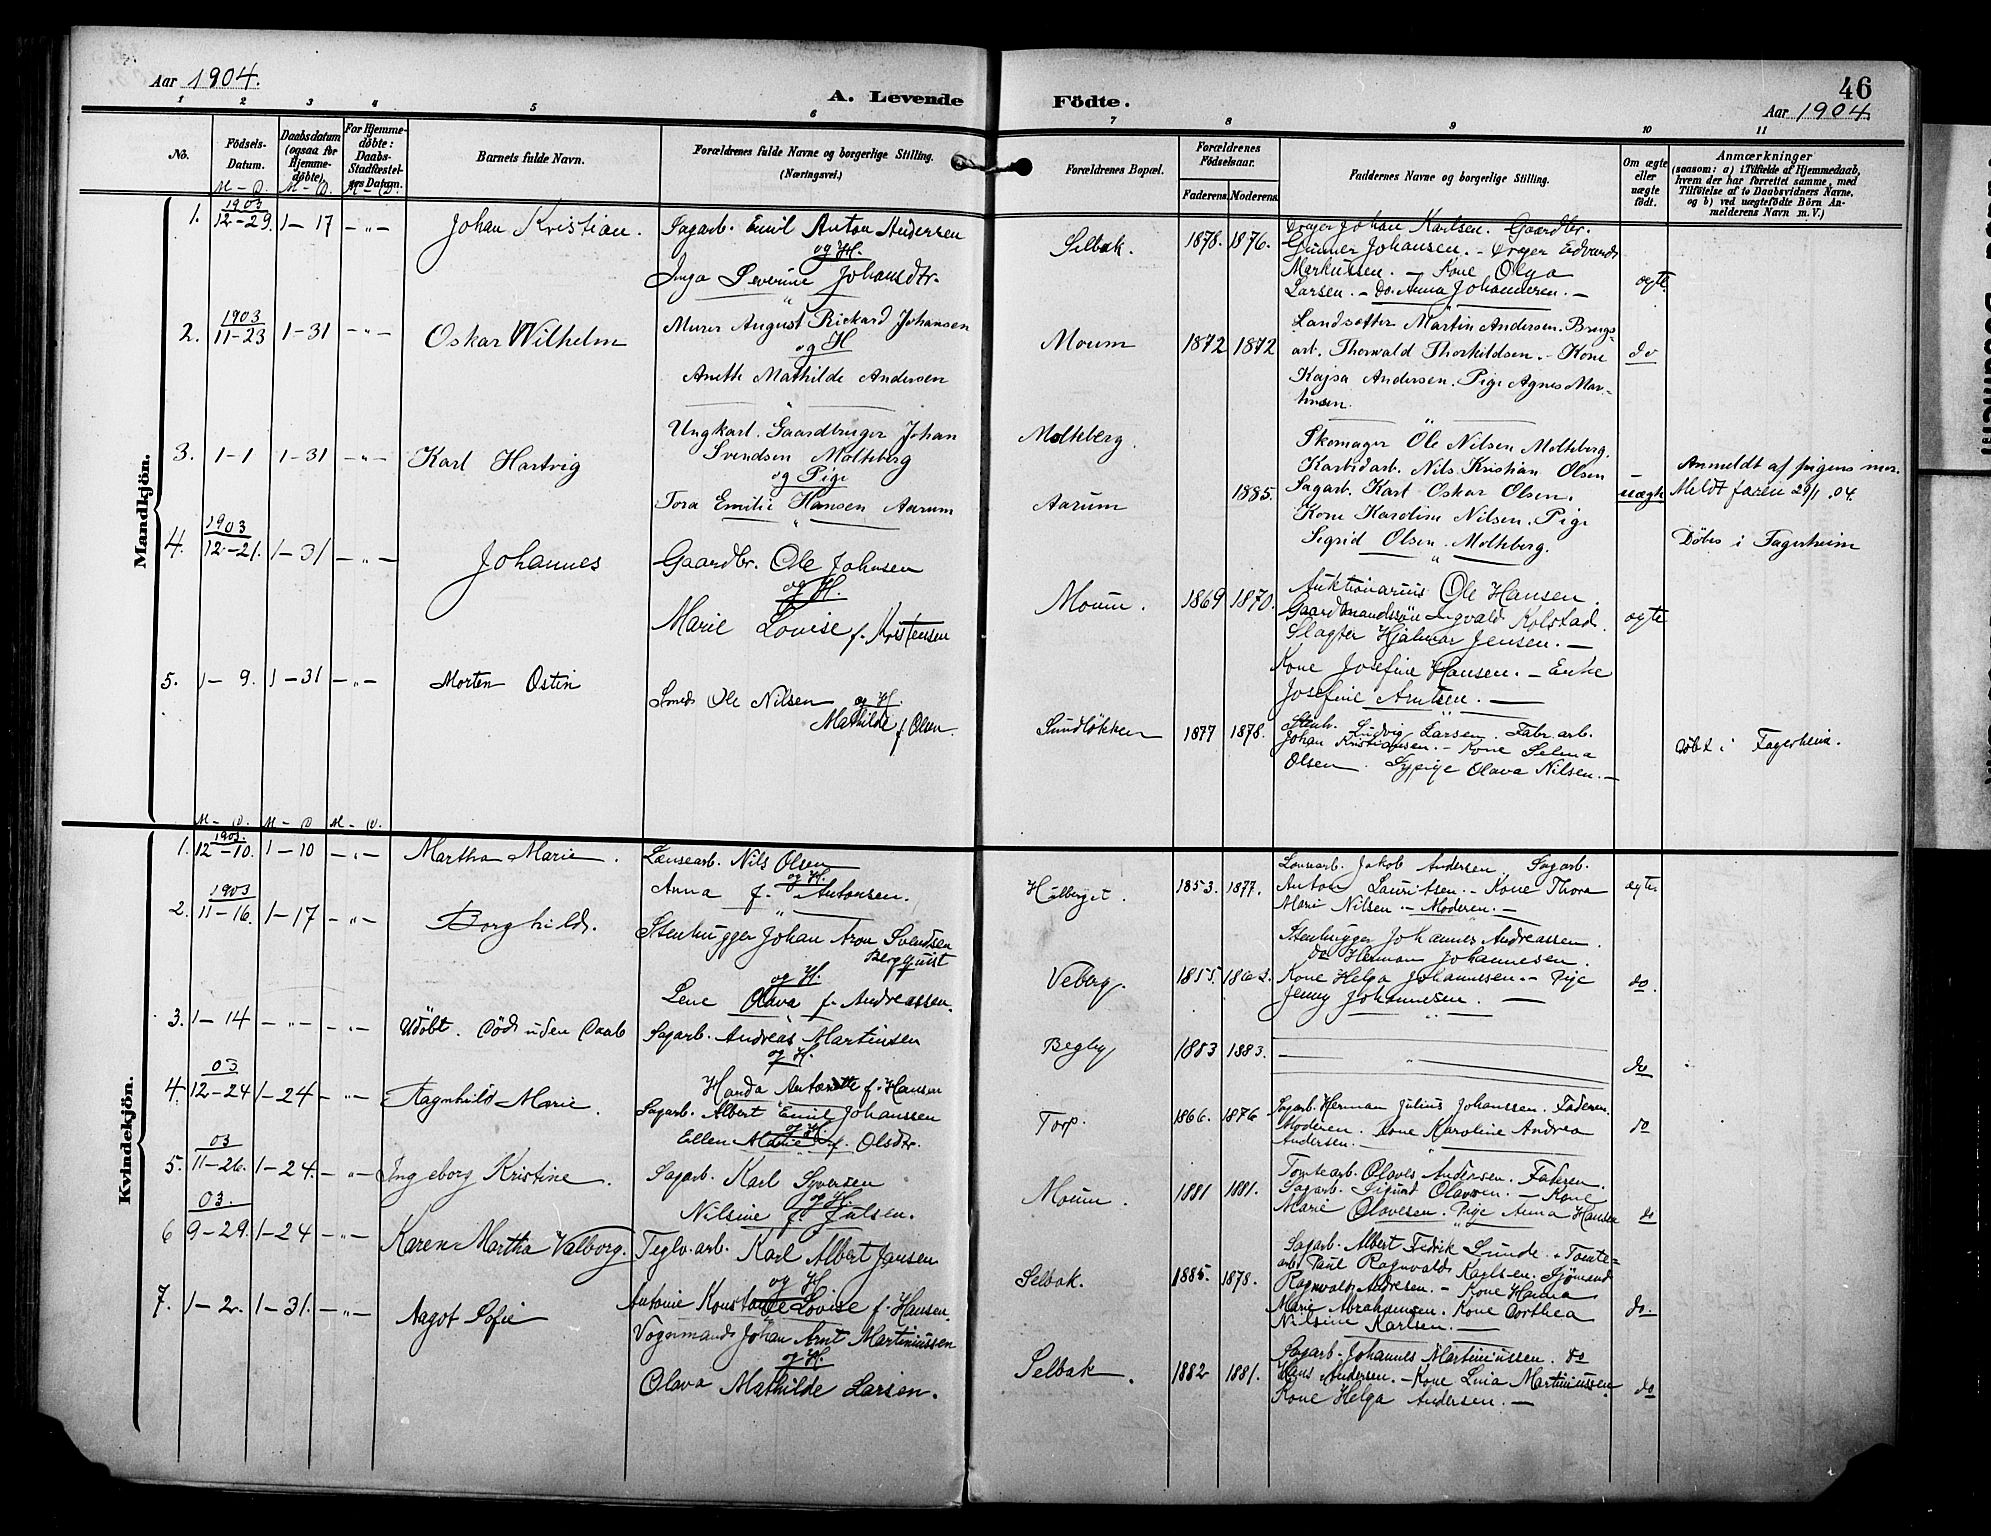 Aar 1904.
A. Levende Födte.
46
Aar 1904.
1 2 3 4 5 6 7 8 9 10 11
No.
Födsels-
Datum.
Daabsdatum
(ogsaa for
Hjemme-
döbte)
For Hjemme-
döbte:
Daabs-
Stadfæstel-
ses Datum.
Barnets fulde Navn.
Forældrenes fulde Navne og borgerlige Stilling.
(Næringsvei.)
Forældrenes Bopæl.
Forældrenes
Födselsaar.
Faderens.
Moderens.
Faddernes Navne og borgerlige Stilling.
Om ægte
eller
uægte
födt.
Anmærkninger
(saasom: a) i Tilfælde af Hjemmedaab,
hvem der har forrettet samme, med
Tilföielse af to Daabsvidners Navne,
og b) ved uægtefödte Börn An-
melderens Navn m. V.)
M - D. M - D. M - D.
Mandkjön.
1903
1. 12-29. 1-17 - " - Johan Kristian. Sagarb. Emil Anton Andersen
og H.
Inga Severine Johansdtr.
Selbak. 1878. 1876.
Dreyer Johan Karlsen. Gaardbr.
Gunner Johansen. - Dreyer Edvard
Markussen. - Kone Olga
Larsen. - do. Anna Johannesen. -
ægte
1903
2. 11-23 1-31 - " - Oskar Wilhelm
Murer August Rickard Johansen
og H
Anette Mathilde Andersen
Moum 1872 1872
Landsætter Martin Andersen. Brugs-
arb. Thorwald Thorkildsen. - Kone
Kajsa Andersen. Pige Agnes Mar-
tinsen.
do
3. 1-1 1-31 - " - Karl Hartvig
Ungkarl. Gaardbruger Johan
Svendsen Moltkberg
og Pige
Tora Emilie Hansen Aarum
Moltkberg.
Aarum 1885.
Skomager Ole Nilsen Moltkberg.
Karbidarb. Nils Kristian Olsen
Sagarb. Karl Oskar Olsen.
Kone Karoline Nilsen. Pige
Sigrid Olsen. Moltkberg.
uægte
Anmeldt af pigens mor.
Meldt faren 29/1 .04.
Döbt i Fagerheim
1903
4. 12-21. 1-31 - " - Johannes
Gaardbr. Ole Johnsen
og H.
Marie Lovise f. Kristensen
Moum. 1869 1870.
Auktionarius Ole Hansen.
Gaardmandssön Ingvald Kolstad.
Slagter Hjalmar Jensen. -
Kone Josefine Hansen. - Enke
Josefine Arntsen. -
ægte
5. 1-9. 1-31 - " - Morten Ostin
Smed Ole Nilsen og H.
Mathilde f. Olsen.
Sundlökken 1877 1878.
Stenh. Ludvig Larsen. Fabr. arb.
Johan Kristiansen. - Kone Selma
Olsen. Sypige Olava Nilsen. -
Döbt i Fagerheim.
M - D. M - D M - D.
Kvindekjön.
1903.
1. 12-10. 1-10 - " - Martha Marie.
Lænsearb. Nils Olsen
og H.
Anna f. Antonsen.
Hulberget. 1853. 1877.
Lensearb. Jakob Andersen Sagarb.
Anton Lauritsen. - Kone Thora
Marie Nilsen. - Moderen. -
ægte
1903
2. 11-16. 1-17 - " - Borghild.
Stenhugger Johan Aron Svendsen
Bergquist
og H.
Lene Olava f. Andreassen.
Veberg. 1855.
Stenhugger Johannes Andreassen.
do Herman Johannesen.
Kone Helga Johannesen. - Pige
Jenny Johannesen. -
do.
3. 1-14 - " - - " - Udöbt. Död uden Daab
Sagarb. Andreas Martinsen
og H.
Handa Antonette f. Hansen
Begby 1883 1883.
do
03
4. 12-24 1-24 - " - Ragnhild Marie.
Sagarb. Albert Emil Johanssen
og H.
Ellen Marie f. Olsdtr.
Torp. 1866. 1876
Sagarb. Herman Julius Johanssen. Faderen.
Moderen. Kone Karoline Andrea
Andersen. -
do
03
5. 11-26. 1-24. - " - Ingeborg Kristine.
Sagarb. Karl Syversen
og H.
Nilsine f. Julsen.
Moum. 1881 1881.
Tomtearb. Olaves Andersen. Faderen.
Sagarb. Sigurd Olavesen. - Kone
Marie Olavesen. Pige Anna Hansen
do
03.
6 9-29. 1-24 - " - Karen Martha Valborg.
Teglv. arb. Karl Albert Jansen
og H
Antonie Konstance Lovise f. Hansen.
Selbak. 1885. 1878.
Sagarb. Albert Fedrik Lunde. Tomte-
arb Paul Ragnvald Karlsen. Sjömand
Ragnvald Andresen. - Kone Hanna
Marie Abrahamsen. Kone Dorthea
Nilsine Karlsen. -
do.
7. 1-2. 1-31. - " - Aagot Sofie
Vognmand Johan Arnt Martiniussen
og H.
Olava Mathilde Larsen.
Selbak. 1882 1881.
Sagarb. Johannes Martiniussen. do
Hans Andersen. - Kone Lina Martiniussen
Kone Helga Andersen. -
do